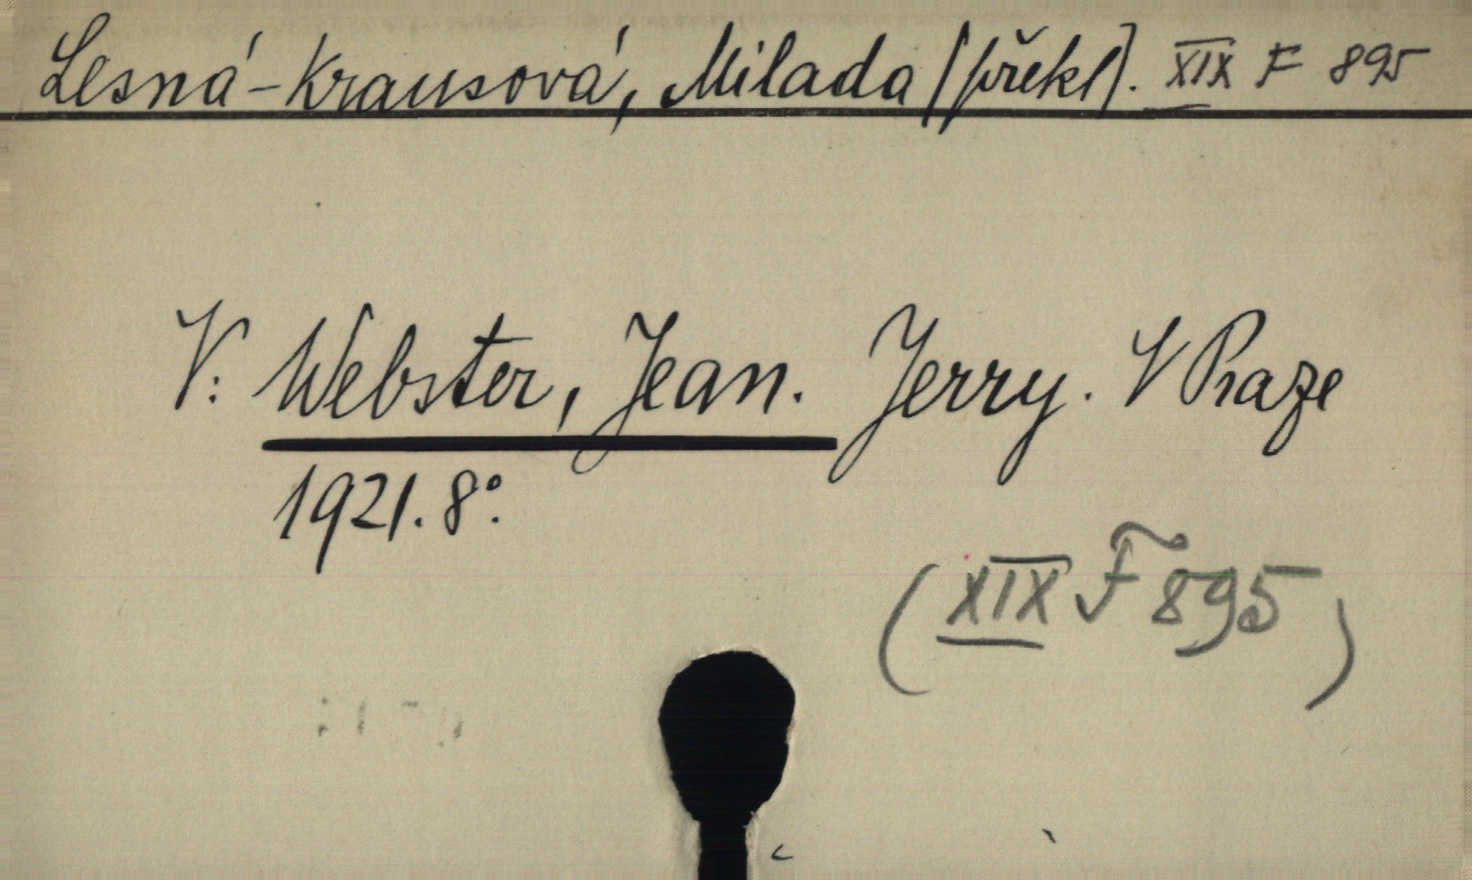 Lesná-Krausová, Milada (překl). XIX F 895
V: Webster, Jean. Jerry. V Praze
1921. 8°.
(XIX F 895)